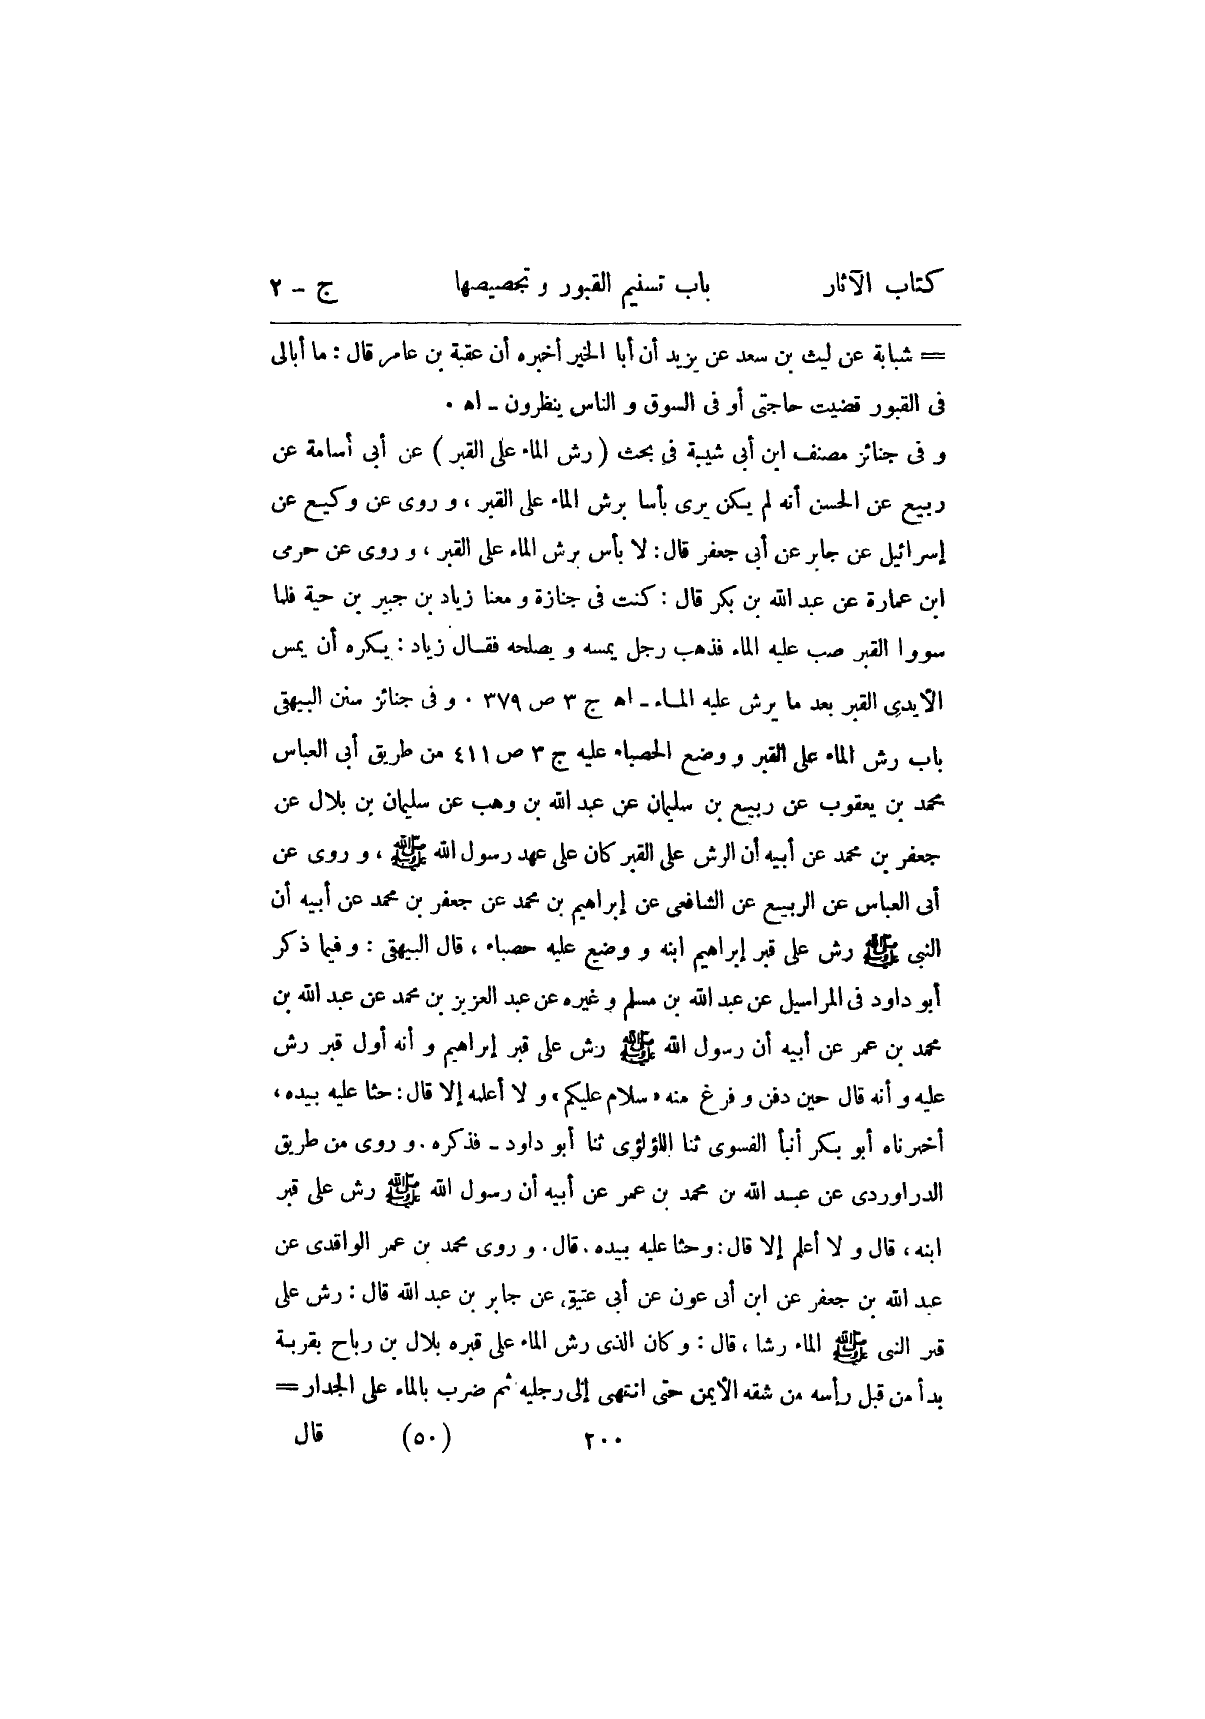 كتاب الآثار باب تسنيم القبور و تجصيصها ج - ٢
= شبابة عن ليث بن سعد عن يزيد أن أبا الخير أخبره أن عقبة بن عامر قال : ما أبالى
فى القبور قضيت حاجتى أو فى السوق و الناس ينظرون - اه ٠
و فى جنائز مصنف ابن أبى شيبة فى بحث ( رش الماء على القبر ) عن أبى أسامة عن
ربيع عن الحسن أنه لم يكن يرى بأسا برش الماء على القبر ، و روى عن وكيع عن
إسرائيل عن جابر عن أبى جعفر قال : لا بأس برش الماء على القبر ، و روى عن حرمى
ابن عمارة عن عبد الله بن بكر قال : كنت فى جنازة و معنا زياد بن جبير بن حية فلما
سووا القبر صب عليه الماء فذهب رجل يمسه و يصلحه فقال زياد : يكره أن يمس
الأيدى القبر بعد ما يرش عليه الماء - اه ج ٣ ص ٣٧٩ ٠ و فى جنائز سنن البيهقى
باب رش الماء على القبر و وضع الحصباء عليه ج ٣ ص ٤١١ من طريق أبى العباس
محمد بن يعقوب عن ربيع بن سليمان عن عبد الله بن وهب عن سليمان بن بلال عن
جعفر بن محمد عن أبيه أن الرش على القبر كان على عهد رسول الله ﷺ ، و روى عن
أبى العباس عن الربيع عن الشافعى عن إبراهيم بن محمد عن جعفر بن محمد عن أبيه أن
النبى ﷺ رش على قبر إبراهيم ابنه و وضع عليه حصباء ، قال البيهقى : و فيما ذكر
أبو داود فى المراسيل عن عبد الله بن مسلم و غيره عن عبد العزيز بن محمد عن عبد الله بن
محمد بن عمر عن أبيه أن رسول الله ﷺ رش على قبر إبراهيم و أنه أول قبر رش
عليه و أنه قال حين دفن و فرغ منه «سلام عليكم» و لا أعلمه إلا قال : حثا عليه بيده ،
أخبرناه أبو بكر أنبأ الفسوى ثنا اللؤلؤى ثنا أبو داود - فذكره ٠ و روى من طريق
الدراوردى عن عبد الله بن محمد بن عمر عن أبيه أن رسول الله ﷺ رش على قبر
ابنه ، قال و لا أعلم إلا قال : و حثا عليه بيده ٠ قال ٠ و روى محمد بن عمر الواقدى عن
عبد الله بن جعفر عن ابن أبى عون عن أبى عتيق عن جابر بن عبد الله قال : رش على
قبر النبى ﷺ الماء رشا ، قال : و كان الذى رش الماء على قبره بلال بن رباح بقربة
بدأ من قبل رأسه من شقه الأيمن حتى انتهى إلى رجليه ثم ضرب بالماء على الجدار =
٢٠٠ (٥٠) قال